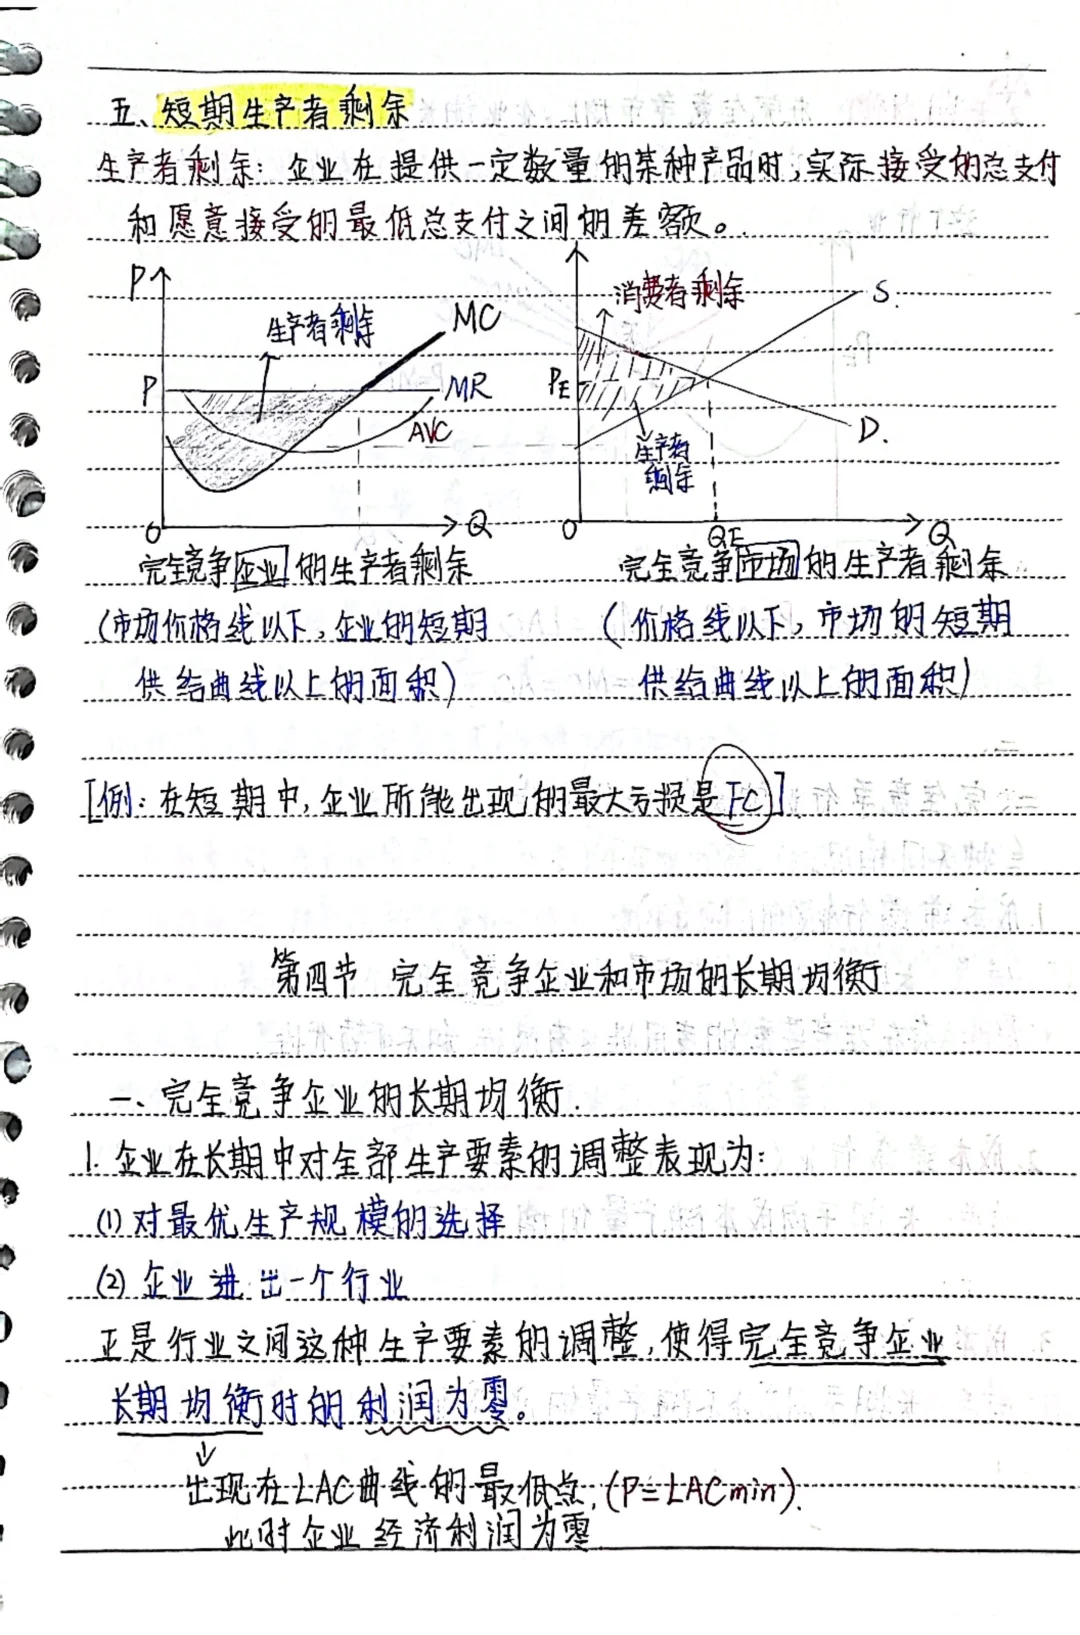 五、短期生产者剩余
生产者剩余：企业在提供一定数量的某种产品时，实际接受的总支付
和愿意接受的最低总支付之间的差额。
P
生产者剩余
MC
P
MR
AVC
O
Q
消费者剩余
S.
PE
D.
生产者
剩余
O
QE
Q
完全竞争企业的生产者剩余
完全竞争市场的生产者剩余
（市场价格线以下，企业的短期
供给曲线以上的面积）
（价格线以下，市场的短期
供给曲线以上的面积）
[例：在短期中，企业所能出现的最大亏损是FC]
第四节 完全竞争企业和市场的长期均衡
一、完全竞争企业的长期均衡.
1.企业在长期中对全部生产要素的调整表现为：
(1)对最优生产规模的选择
(2)企业进出一个行业
正是行业之间这种生产要素的调整，使得完全竞争企业
长期均衡时的利润为零。
↓
出现在LAC曲线的最低点,(P=LACmin).
此时企业经济利润为零